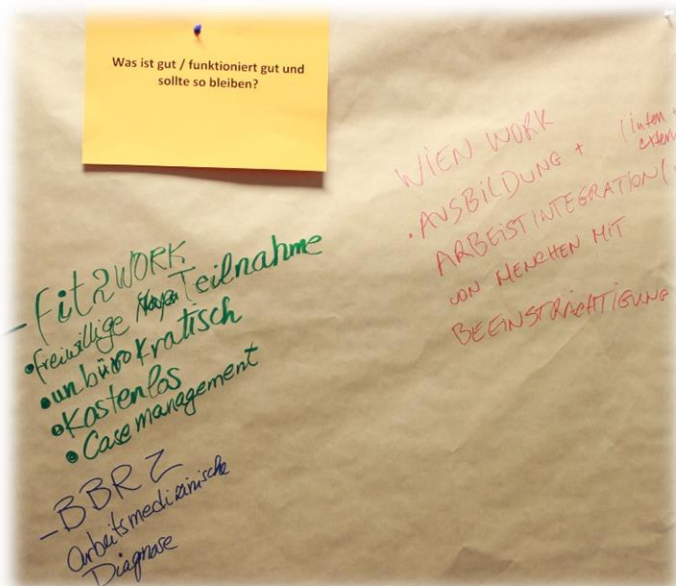 Was ist gut / funktioniert gut und
sollte so bleiben?
WIEN WORK
• AUSBILDUNG + (intern +
extern
ARBEISTINTEGRATION (
VON MENCHEN MIT
BEEINSTRÄCHTIGUNG
- fit2WORK
• freiwillige Teilnahme
• unbürokratisch
• Kostenlos
• Case management
- BBRZ
Arbeitsmedizinische
Diagnose